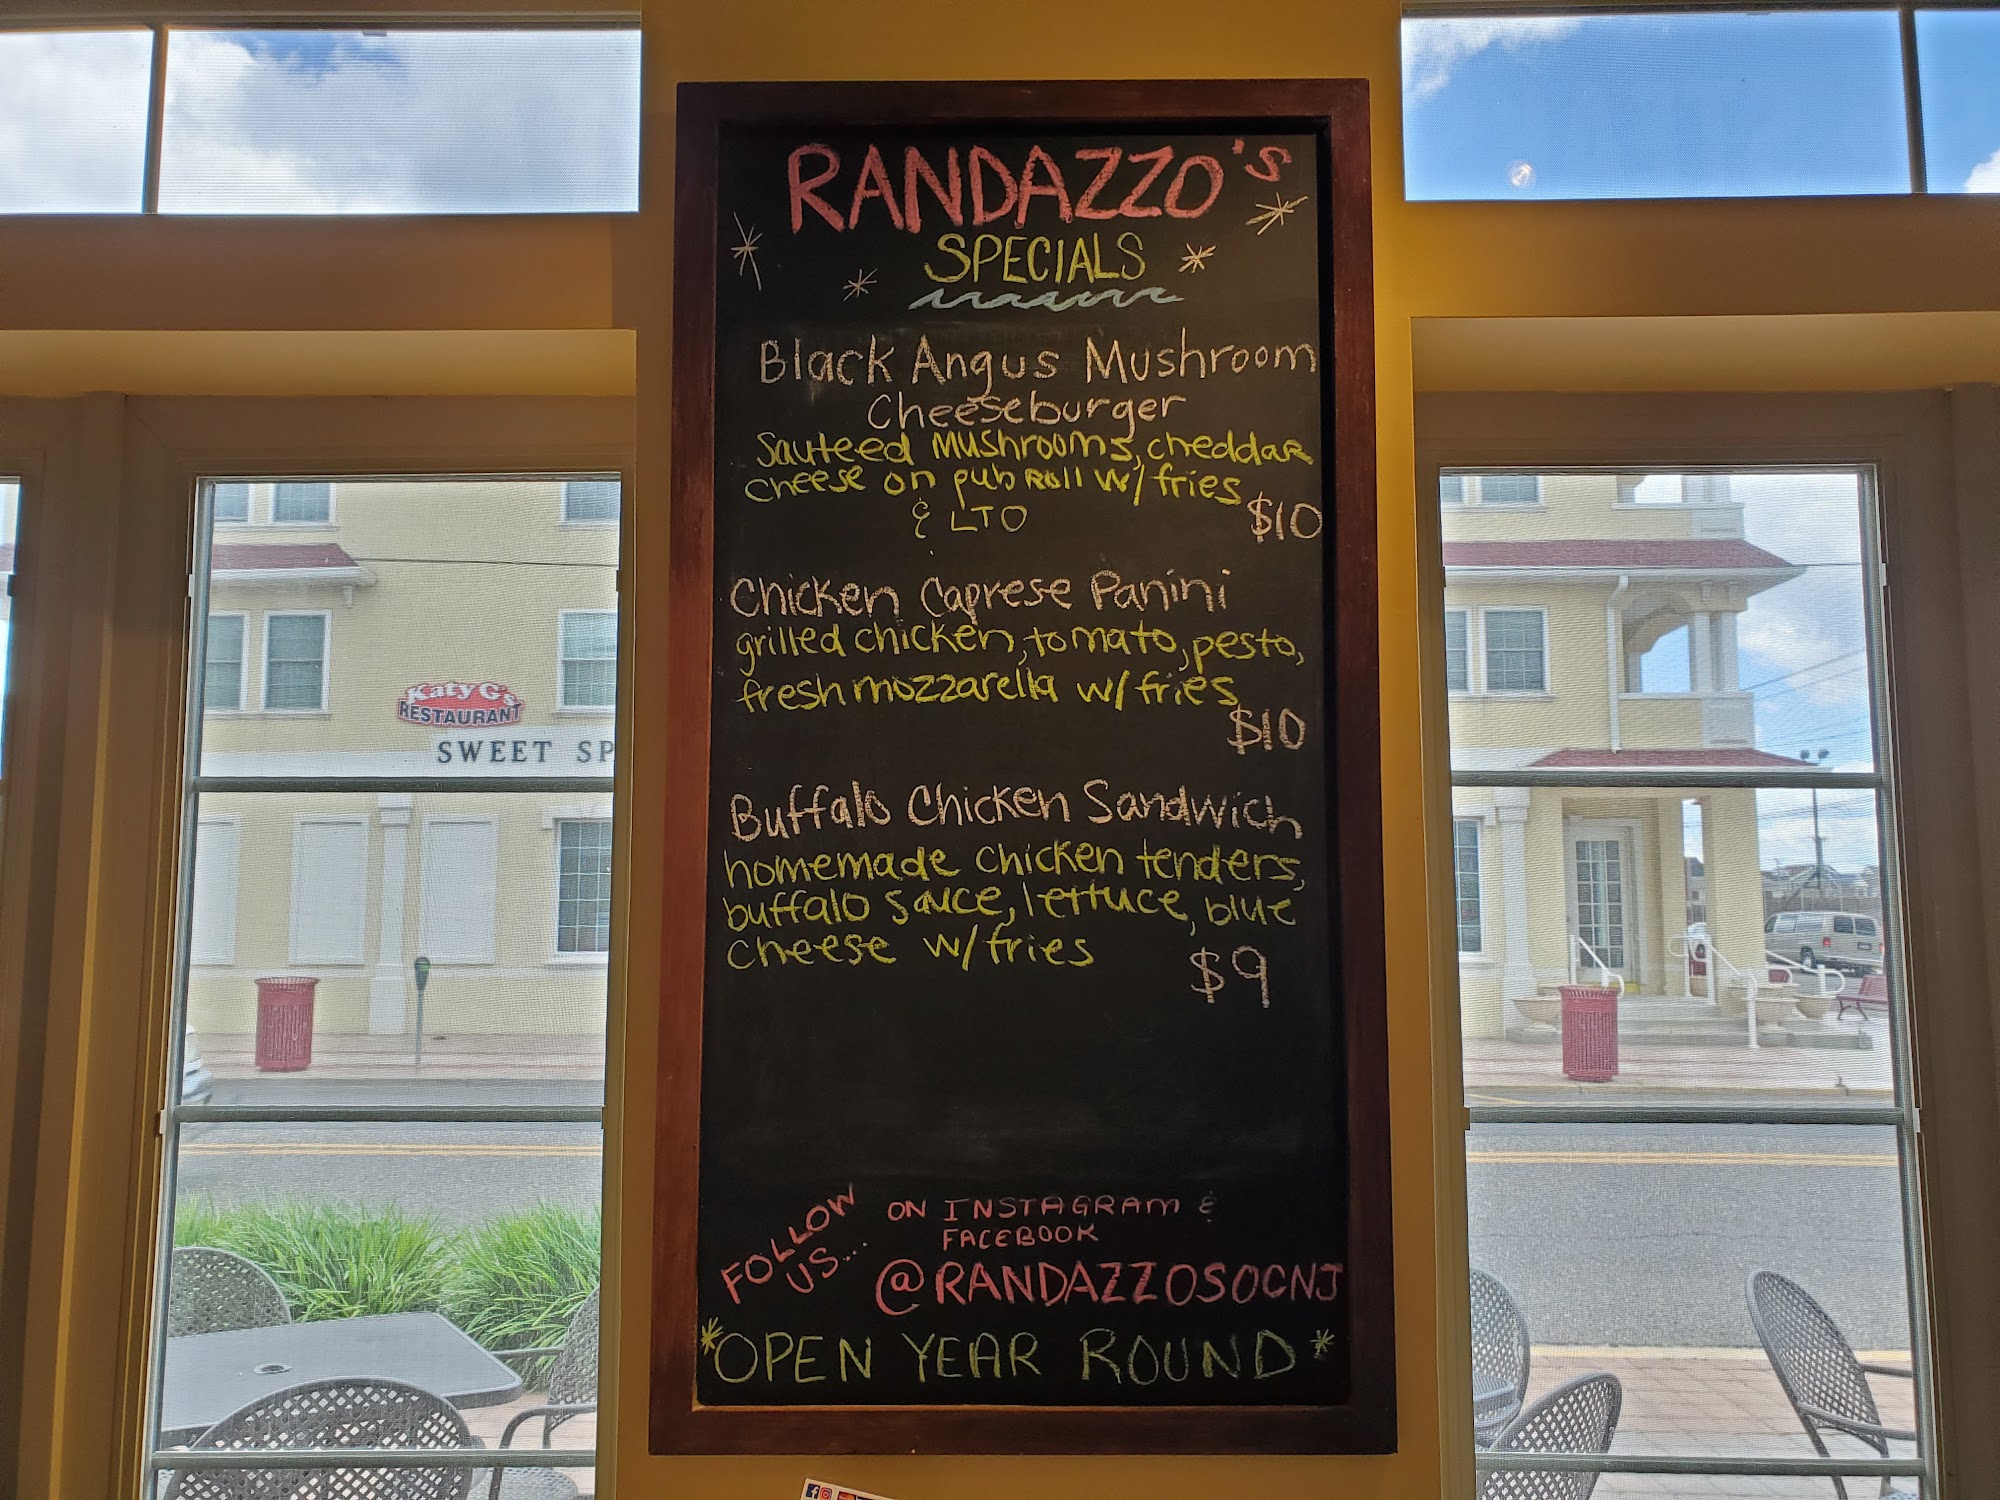 RANDAZZO's
SPECIALS
Black Angus Mushroom
Cheeseburger
Sauteed Mushrooms, cheddar
cheese on pub Roll w/ fries
& LTO
$10
Chicken Caprese Panini
grilled chicken, tomato, pesto,
fresh mozzarella w/ fries
$10
Buffalo Chicken Sandwich
homemade chicken tenders,
buffalo sauce, lettuce, blue
cheese w/ fries
$9
FOLLOW
US...
ON INSTAGRAM &
FACEBOOK
@RANDAZZOSOCNJ
*OPEN YEAR ROUND*
Katy G's
RESTAURANT
SWEET SP